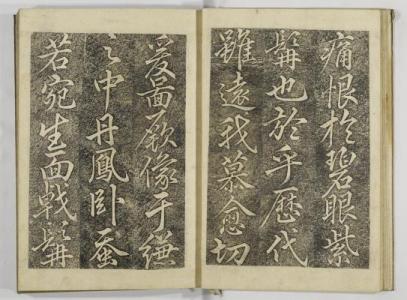 痛恨於碧眼紫
髯也於乎歷代
雖遠我慕愈切
爰面厥像于縑
之中丹鳳臥蚕
若宛生面戟髯